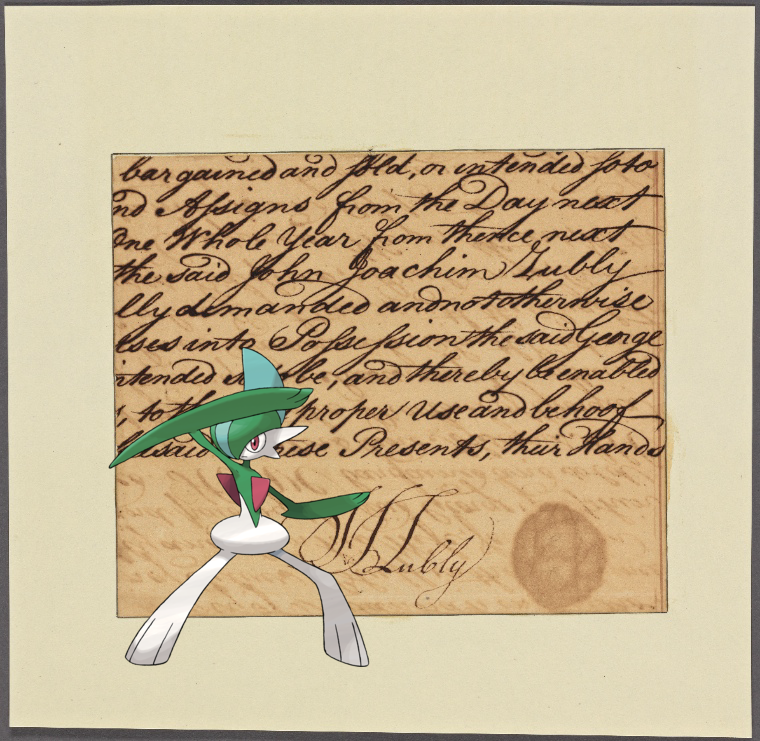 bargained and Sold, or intended so to
nd Assigns from the Day next
One Whole Year from thence next
the said John Joachim Zubly
lly demanded and not otherwise
ises into Possession the said George
ntended be, and thereby be enabled
, to proper Use and behoof
said hese Presents, their Hands
JJZubly